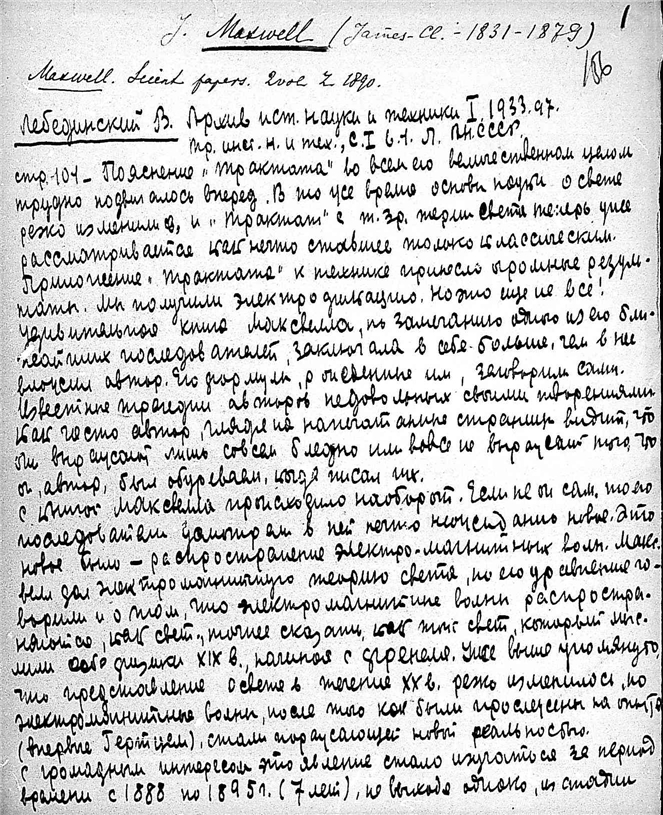 1
J. Maxwell (James-Cl. - 1831-1879)
186
Maxwell. Scient papers. 2vol 1890.
Лебединский В. Архив ист. науки и техники I. 1933. 97.
Тр. инст. н. и тех., с. I в. 1. Л. АН СССР.
стр. 101 - Пояснение „Трактата" во всем его величественном целом
трудно подвигалось вперед. В то же время основы науки о свете
резко изменились, и „Трактат" с т. зр. теории света теперь уже
рассматривается как нечто ставшее только классическим.
Приложение „Трактата" к технике принесло огромные резуль-
таты. Мы получили электрификацию. Но это еще не все!
Удивительная книга Максвелла, по замечанию одного из его бли-
жайших последователей, заключала в себе больше, чем в нее
вложил автор. Его формулы, написанные им, заговорили сами.
Известны трагедии авторов недовольных своими творениями
как часто автор, глядя на напечатанные страницы видит, что
они выражают лишь совсем бледно или вовсе не выражают того, что
он, автор, был обуреваем, когда писал их.
С книгой Максвелла происходило наоборот. Если не он сам, то его
последователи усмотрели в ней нечто неожиданно новое. Это
новое было - распространение электро-магнитных волн. Макс-
велл дал электромагнитную теорию света, но его уравнения го-
ворили и о том, что электромагнитные волны распростра-
няются, как свет, точнее сказать, как тот свет, который мыс-
лили себе физики XIX в., начиная с Френеля. Уже выше упомянуто,
что представление о свете в течение XX в. резко изменилось, но
электромагнитные волны, после того как были прослежены на опыте
(впервые Герцем), стали поражающей новой реальностью.
С громадным интересом это явление стало изучаться за период
времени с 1888 по 1895 г. (7 лет), не выходя однако, из стадии